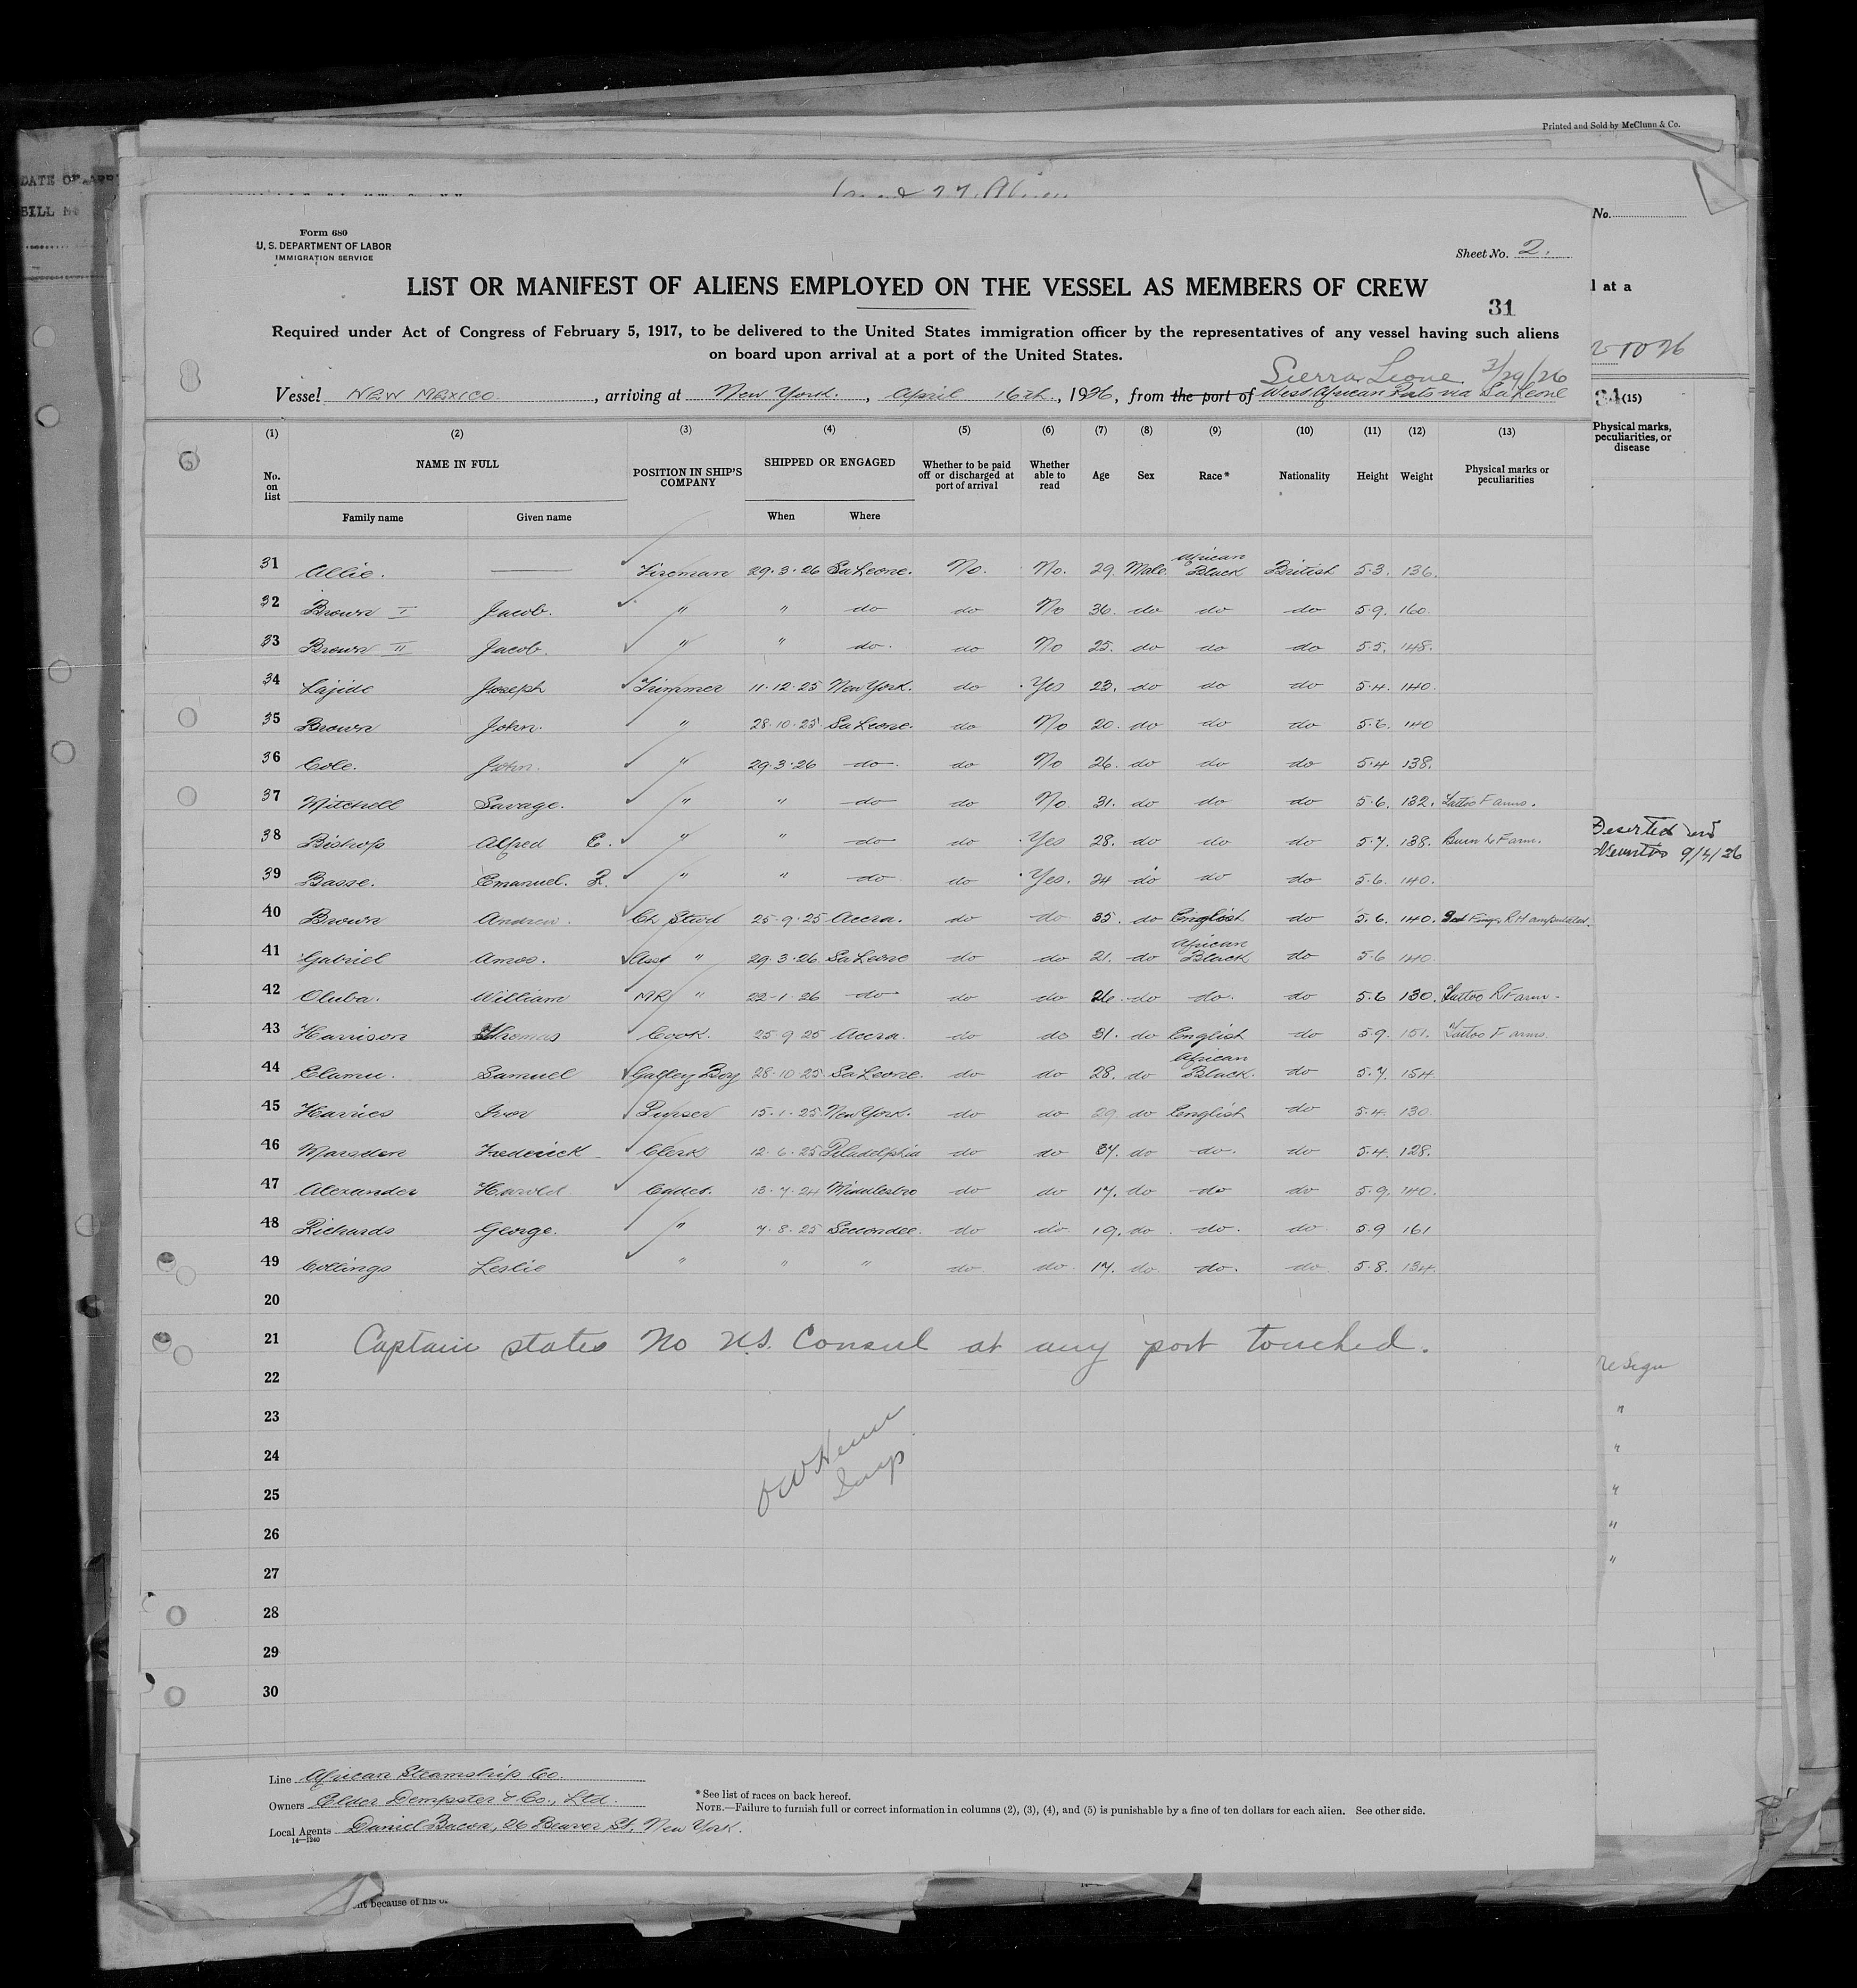 Printed and Sold by McClunn & Co.
DATE OF ARR
BILL
No.
Form 680
U. S. DEPARTMENT OF LABOR
IMMIGRATION SERVICE
Sheet No. 2.
LIST OR MANIFEST OF ALIENS EMPLOYED ON THE VESSEL AS MEMBERS OF CREW
l at a
31
Required under Act of Congress of February 5, 1917, to be delivered to the United States immigration officer by the representatives of any vessel having such aliens
on board upon arrival at a port of the United States.
Sierra Leone 3/29/26
Vessel NEW MEXICO, arriving at New York., April 16th, 1926, from the port of West African Ports via Sa Leone
(1) (2) (3) (4) (5) (6) (7) (8) (9) (10) (11) (12) (13) (15)
No. on list NAME IN FULL Family name Given name POSITION IN SHIP'S COMPANY SHIPPED OR ENGAGED When Where Whether to be paid off or discharged at port of arrival Whether able to read Age Sex Race* Nationality Height Weight Physical marks or peculiarities
Physical marks, peculiarities, or disease
31 Allie. — Fireman 29.3.26 Sa Leone. No. No. 29. Male African Black British 5.3. 136.
32 Brown I Jacob. " " do do No 36. do do do 5.9. 160.
33 Brown II Jacob. " " do. do No 25. do do do 5.5. 148.
34 Lajide Joseph Trimmer 11.12.25 New York. do Yes 23. do do do 5.4. 140.
35 Brown John. " 28.10.25 Sa Leone. do No 20. do do do 5.6. 140
36 Cole. John. " 29.3.26 do do No 26. do do do 5.4 138.
37 Mitchell Savage. " " do do No. 31. do do do 5.6. 132. Tattoo F arms.
38 Bishop Alfred E. " " do do Yes 28. do do do 5.7. 138. Burn L Farm.
Deserted
9/4/26
39 Basse. Emanuel. R. " " do do Yes. 24 do do do 5.6. 140.
40 Brown Andrew. Ch Stwd 25.9.25 Accra. do do 35. do English do 5.6. 140. Finger R H amputated.
41 Gabriel Amos. Asst " 29.3.26 Sa Leone do do 21. do African Black do 5.6 140.
42 Oluba. William MR " 22-1.26 do do do 26. do do. do 5.6 130. Tattoo R Farm.
43 Harrison Thomas Cook. 25.9.25 Accra. do do 31. do English do 5.9. 151. Tattoo F arms.
44 Elamu. Samuel Galley Boy 28.10.25 Sa Leone. do do 28. do African Black. do 5.7. 154.
45 Harries Ivor Purser 15.1.25 New York. do do 29. do English do 5.4. 130.
46 Marsden Frederick Clerk 12.6.25 Piladelphia do do 37. do do. do 5.4. 128.
47 Alexander Harold Cadet. 13.7.24 Middlesbro do do 17. do do do 5.9. 140.
48 Richards George. " 7.8.25 Secondee. do do 19. do do. do 5.9 161
49 Collings Leslie " " " do do 17. do do. do 5.8. 134.
20
21 Captain states No U.S. Consul at any port touched.
22
23
24
25
26
27
28
29
30
Line African Steamship Co.
Owners Elder Dempster & Co., Ltd.
Local Agents Daniel Bacon, 26 Beaver St. New York.
14—1240
*See list of races on back hereof.
NOTE.—Failure to furnish full or correct information in columns (2), (3), (4), and (5) is punishable by a fine of ten dollars for each alien. See other side.
because of his